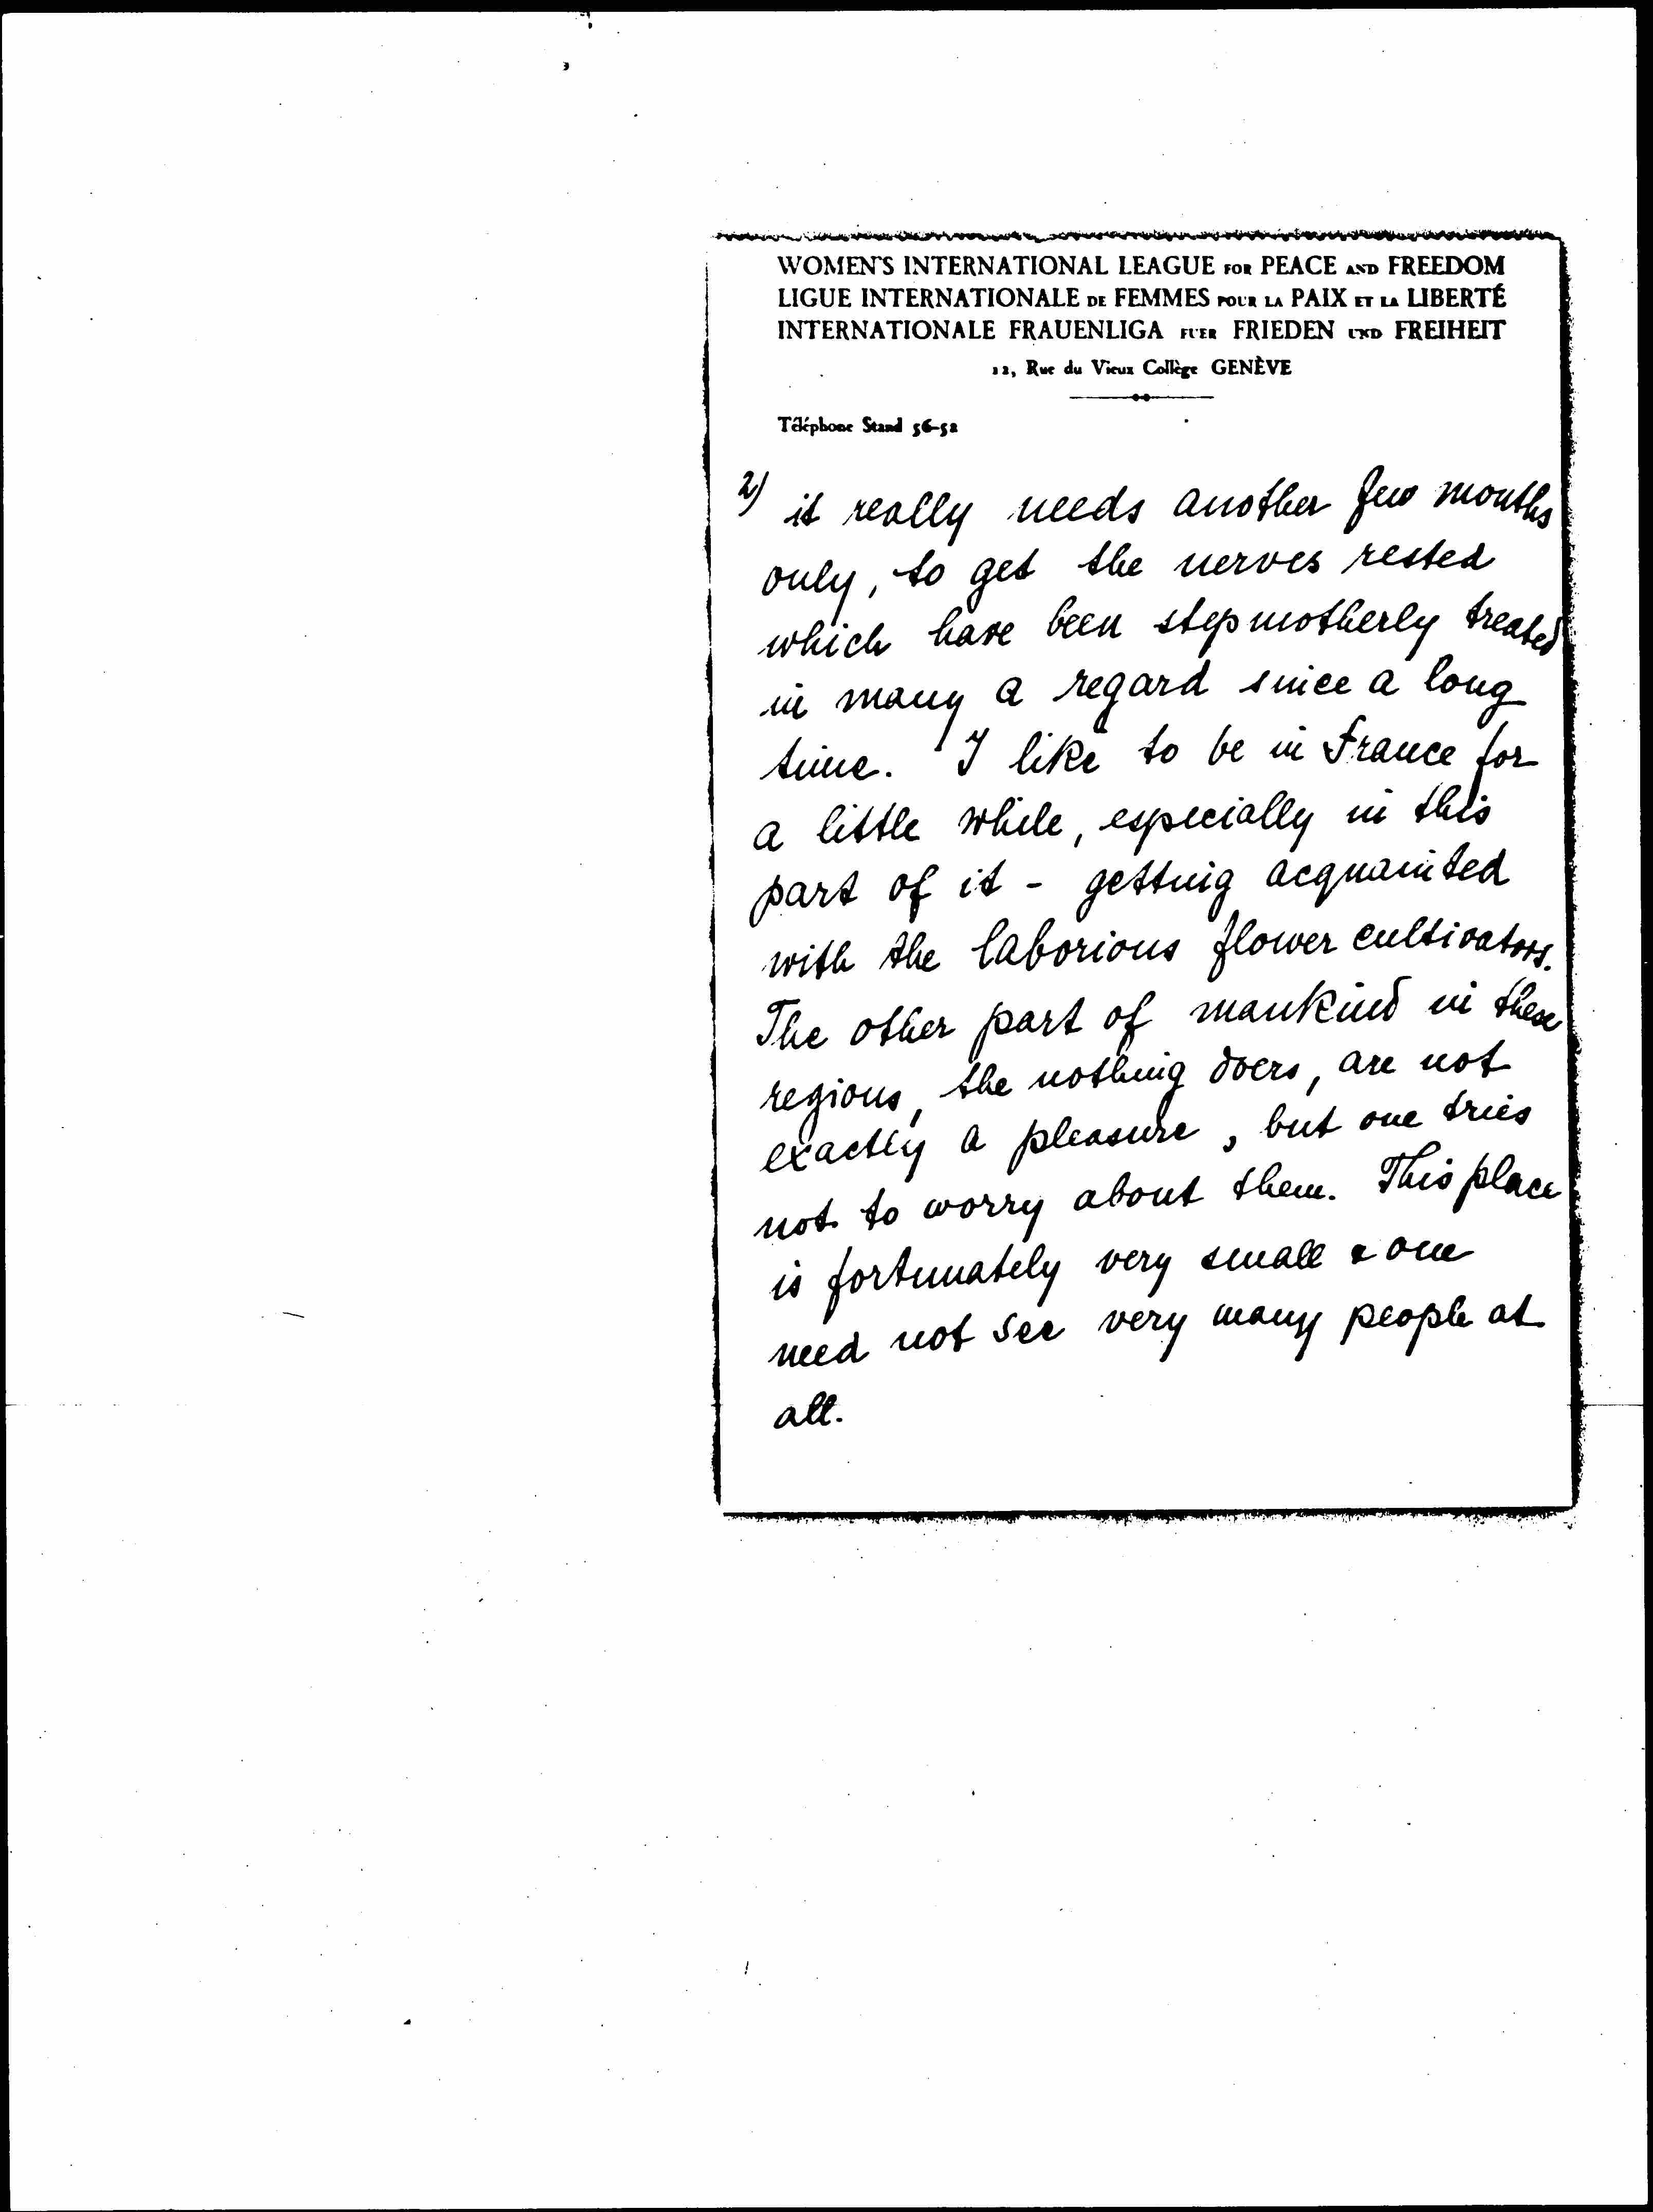 WOMEN'S INTERNATIONAL LEAGUE FOR PEACE AND FREEDOM
LIGUE INTERNATIONALE DE FEMMES POUR LA PAIX ET LA LIBERTÉ
INTERNATIONALE FRAUENLIGA FUER FRIEDEN UND FREIHEIT
12, Rue du Vieux Collège GENÈVE
Téléphone Stand 56-52
2) it really needs another few months
only, to get the nerves rested
which have been stepmotherly treated
in many a regard since a long
time. I like to be in France for
a little while, especially in this
part of it - getting acquainted
with the laborious flower cultivators.
The other part of mankind in these
regions, the nothing doers, are not
exactly a pleasure, but one tries
not to worry about them. This place
is fortunately very small & one
need not see very many people at
all.